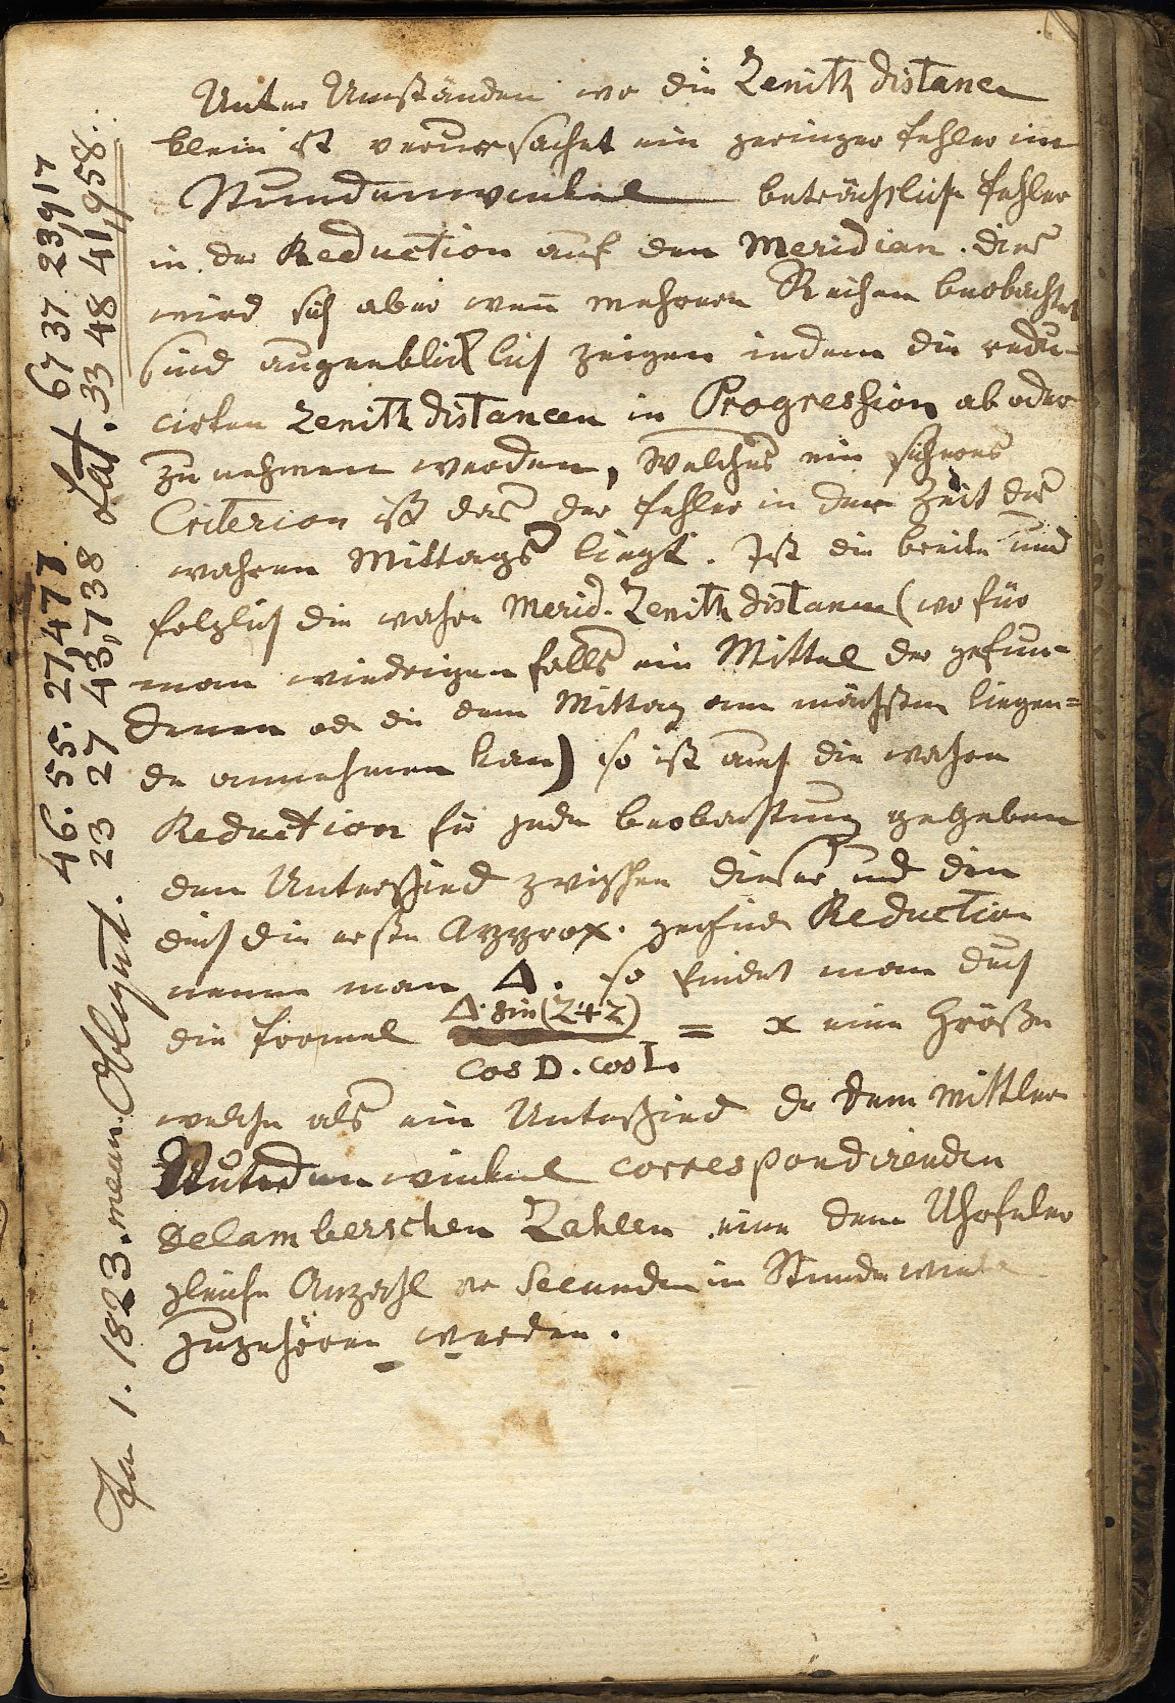 Unter Umständen wo die Zenith distancen
klein ist verursachet ein geringer fehler im
Stundenwinkel beträchtliche fehler
in der Reduction auf den Meridian. dies
wird sich aber wenn mehrere Reihen beobachtet
sind augenblicklich zeigen indem die redu-
cirten Zenith distancen in Progression ab oder
zu nehmen werden, Welches ein sicheres
Criterion ist das der fehler in der Zeit des
wahren Mittags liegt. Ist die breite und
folglich die wahre Merid. Zenith distance (wofür
man wiedrigen falls ein Mittel der gefun-
denen od. die dem Mittag am nächsten liegen=
de annehmen kan) so ist auch die wahre
Reduction für jede beobachtung gegeben
den Unterschied zwischen dieser und den
durch die erste Approx. Reduction
nenne man Δ. so findet man durch
die formel Δ. sin(Z+z) / Cos D. cos L. = x eine Größe
welche als ein Unterschied der dem mittlern
Stundenwinkel correspondirenden
Delamberschen Zahlen eine dem Uhrfehler
gleiche Anzahl von Secunden im Stundenwinkel
zugehören werden.
46. 55. 27,477. 67 37 23,917
Jan 1. 1823. mean. Obliquit. 23 27 43,738 Lat. 33 48 41,958.